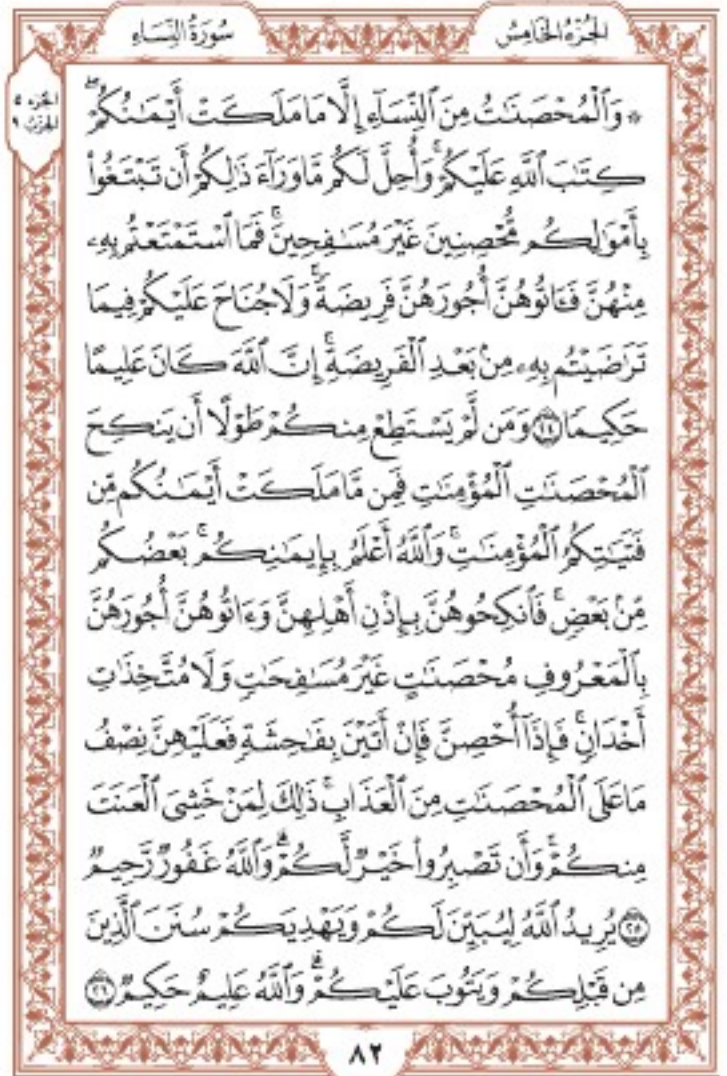 الجُزْءُ الخَامِسُ
سُورَةُ النِّسَاءِ
الجزء ٥
الحزب ٩
۞ وَٱلْمُحْصَنَٰتُ مِنَ ٱلنِّسَآءِ إِلَّا مَا مَلَكَتْ أَيْمَٰنُكُمْ ۖ
كِتَٰبَ ٱللَّهِ عَلَيْكُمْ ۚ وَأُحِلَّ لَكُم مَّا وَرَآءَ ذَٰلِكُمْ أَن تَبْتَغُوا۟
بِأَمْوَٰلِكُم مُّحْصِنِينَ غَيْرَ مُسَٰفِحِينَ ۚ فَمَا ٱسْتَمْتَعْتُم بِهِۦ
مِنْهُنَّ فَـَٔاتُوهُنَّ أُجُورَهُنَّ فَرِيضَةً ۚ وَلَا جُنَاحَ عَلَيْكُمْ فِيمَا
تَرَٰضَيْتُم بِهِۦ مِنۢ بَعْدِ ٱلْفَرِيضَةِ ۚ إِنَّ ٱللَّهَ كَانَ عَلِيمًا
حَكِيمًا ٢٤ وَمَن لَّمْ يَسْتَطِعْ مِنكُمْ طَوْلًا أَن يَنكِحَ
ٱلْمُحْصَنَٰتِ ٱلْمُؤْمِنَٰتِ فَمِن مَّا مَلَكَتْ أَيْمَٰنُكُم مِّن
فَتَيَٰتِكُمُ ٱلْمُؤْمِنَٰتِ ۚ وَٱللَّهُ أَعْلَمُ بِإِيمَٰنِكُم ۚ بَعْضُكُم
مِّنۢ بَعْضٍ ۚ فَٱنكِحُوهُنَّ بِإِذْنِ أَهْلِهِنَّ وَءَاتُوهُنَّ أُجُورَهُنَّ
بِٱلْمَعْرُوفِ مُحْصَنَٰتٍ غَيْرَ مُسَٰفِحَٰتٍ وَلَا مُتَّخِذَٰتِ
أَخْدَانٍ ۚ فَإِذَآ أُحْصِنَّ فَإِنْ أَتَيْنَ بِفَٰحِشَةٍ فَعَلَيْهِنَّ نِصْفُ
مَا عَلَى ٱلْمُحْصَنَٰتِ مِنَ ٱلْعَذَابِ ۚ ذَٰلِكَ لِمَنْ خَشِىَ ٱلْعَنَتَ
مِنكُمْ ۚ وَأَن تَصْبِرُوا۟ خَيْرٌ لَّكُمْ ۗ وَٱللَّهُ غَفُورٌ رَّحِيمٌ
٢٥ يُرِيدُ ٱللَّهُ لِيُبَيِّنَ لَكُمْ وَيَهْدِيَكُمْ سُنَنَ ٱلَّذِينَ
مِن قَبْلِكُمْ وَيَتُوبَ عَلَيْكُمْ ۗ وَٱللَّهُ عَلِيمٌ حَكِيمٌ ٢٦
٨٢